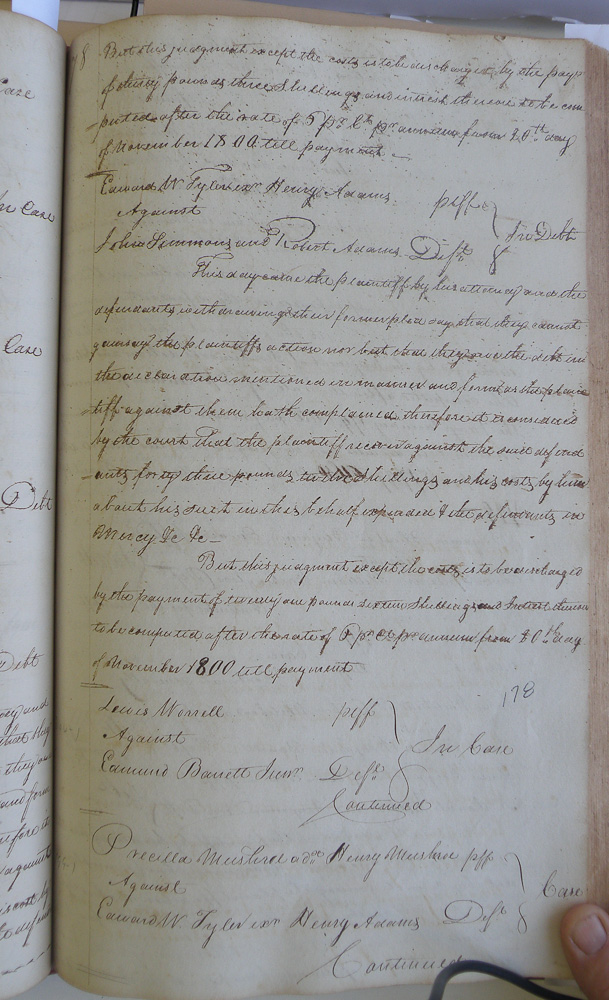 But this judgment except the costs is to be discharged by the pay
of thirty pounds three Shillings and interest thereon to be com
puted after the rate of 5 pr. Ct. pr. annum from 20th day
of November 1800 till payment —
Edward W Tyler exr Henry Adams plff
Against
In Debt
John Simmons and Robert Adams Defts.
This day came the plaintiff by his attorney and the
defendants withdrawing their former plea say that they cannot
gainsay the plaintiffs action nor but that they owe the debt in
the declaration mentioned in manner and form as the plain
tiff against them hath complained therefore it is considered
by the court that the plaintiff recover against the said defend
ants forty three pounds Shillings and his costs by him
about his suit in this behalf expended & the defendants in
Mercy &c &c —
But this judgment except the costs is to be discharged
by the payment of twenty one pounds sixteen Shillings and Interest thereon
to be computed after the rate of 5 pr. Ct pr annum from 20th day
of November 1800 till payment
178
Lewis Worrell plff
Against
In Case
Edmund Barrett Junr. Deft.
Continued
Precilla admx Henry plff
Against
Case
Edward W Tyler exr Henry Adams Deft.
Continued
Case
In Case
Case
Debt
Debt